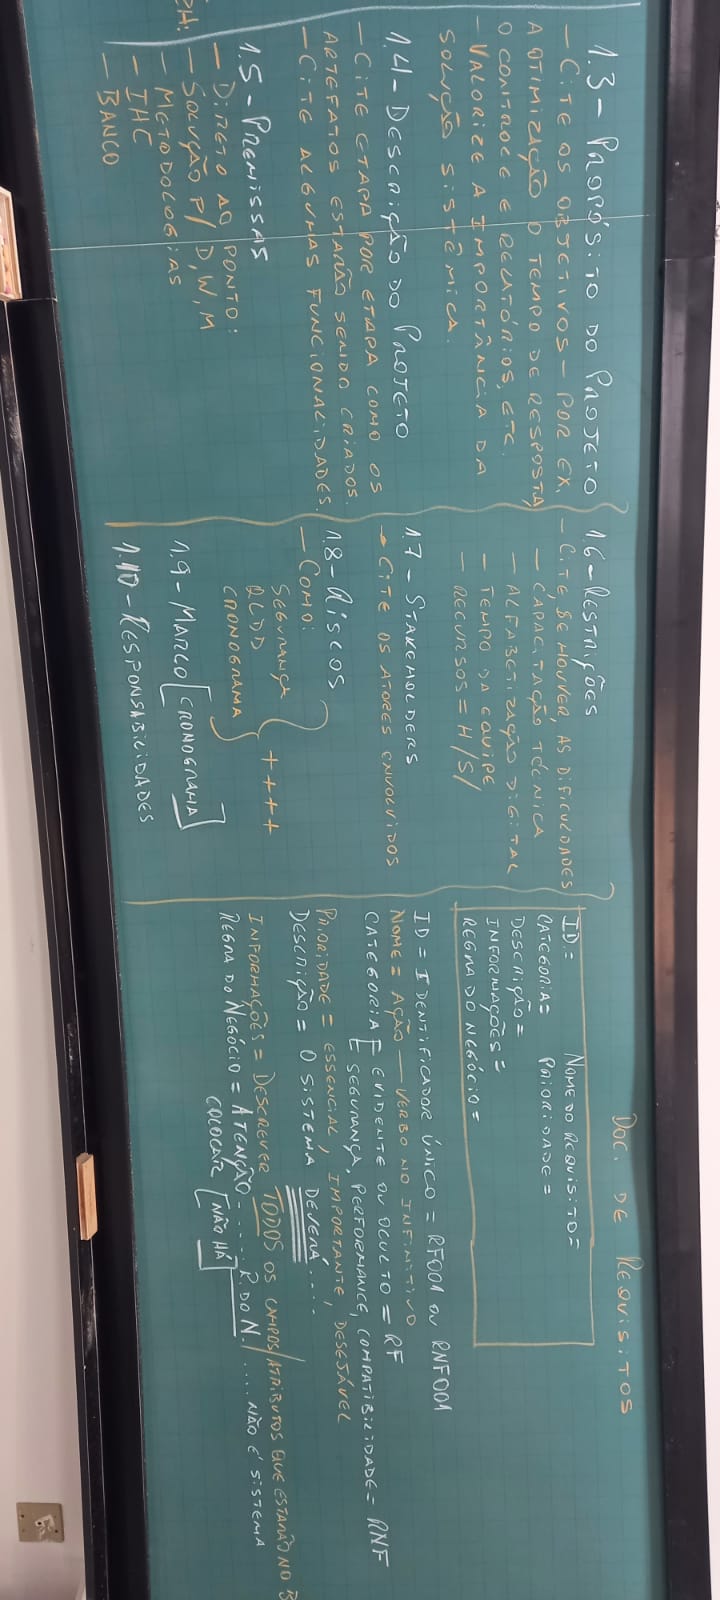 1.3 - PROPÓSITO DO PROJETO
- CITE OS OBJETIVOS - POR EX.
A OTIMIZAÇÃO O TEMPO DE RESPOSTA,
O CONTROLE E RELATÓRIOS, ETC.
- VALORIZE A IMPORTÂNCIA DA
SOLUÇÃO SISTÊMICA.
1.4 - DESCRIÇÃO DO PROJETO
- CITE ETAPA POR ETAPA COMO OS
ARTEFATOS ESTARÃO SENDO CRIADOS.
- CITE ALGUMAS FUNCIONALIDADES.
1.5 - PREMISSAS
- DIRETO AO PONTO:
- SOLUÇÃO P/ D, W, M
- METODOLOGIAS
- IHC
- BANCO
1.6 - RESTRIÇÕES
- CITE, SE HOUVER, AS DIFICULDADES
- CAPACITAÇÃO TÉCNICA
- ALFABETIZAÇÃO DIGITAL
- TEMPO DA EQUIPE
- RECURSOS = H/S/
1.7 - STAKEHOLDERS
→ CITE OS ATORES ENVOLVIDOS
1.8 - RISCOS
- COMO:
SEGURANÇA
QLDD
CRONOGRAMA
++++
1.9 - MARCO [CRONOGRAMA]
1.10 - RESPONSABILIDADES
DOC. DE REQUISITOS
ID = NOME DO REQUISITO =
CATEGORIA = PRIORIDADE =
DESCRIÇÃO =
INFORMAÇÕES =
REGRA DO NEGÓCIO =
ID = IDENTIFICADOR ÚNICO = RF001 OU RNF001
NOME = AÇÃO — VERBO NO INFINITIVO
CATEGORIA E EVIDENTE OU OCULTO = RF
E SEGURANÇA, PERFORMANCE, COMPATIBILIDADE = RNF
PRIORIDADE = ESSENCIAL, IMPORTANTE, DESEJÁVEL
DESCRIÇÃO = O SISTEMA DEVERÁ ....
INFORMAÇÕES = DESCREVER TODOS OS CAMPOS/ATRIBUTOS QUE ESTARÃO NO B
REGRA DO NEGÓCIO = ATENÇÃO ...... R. DO N. / .... NÃO É SISTEMA
COLOCAR [NÃO HÁ]